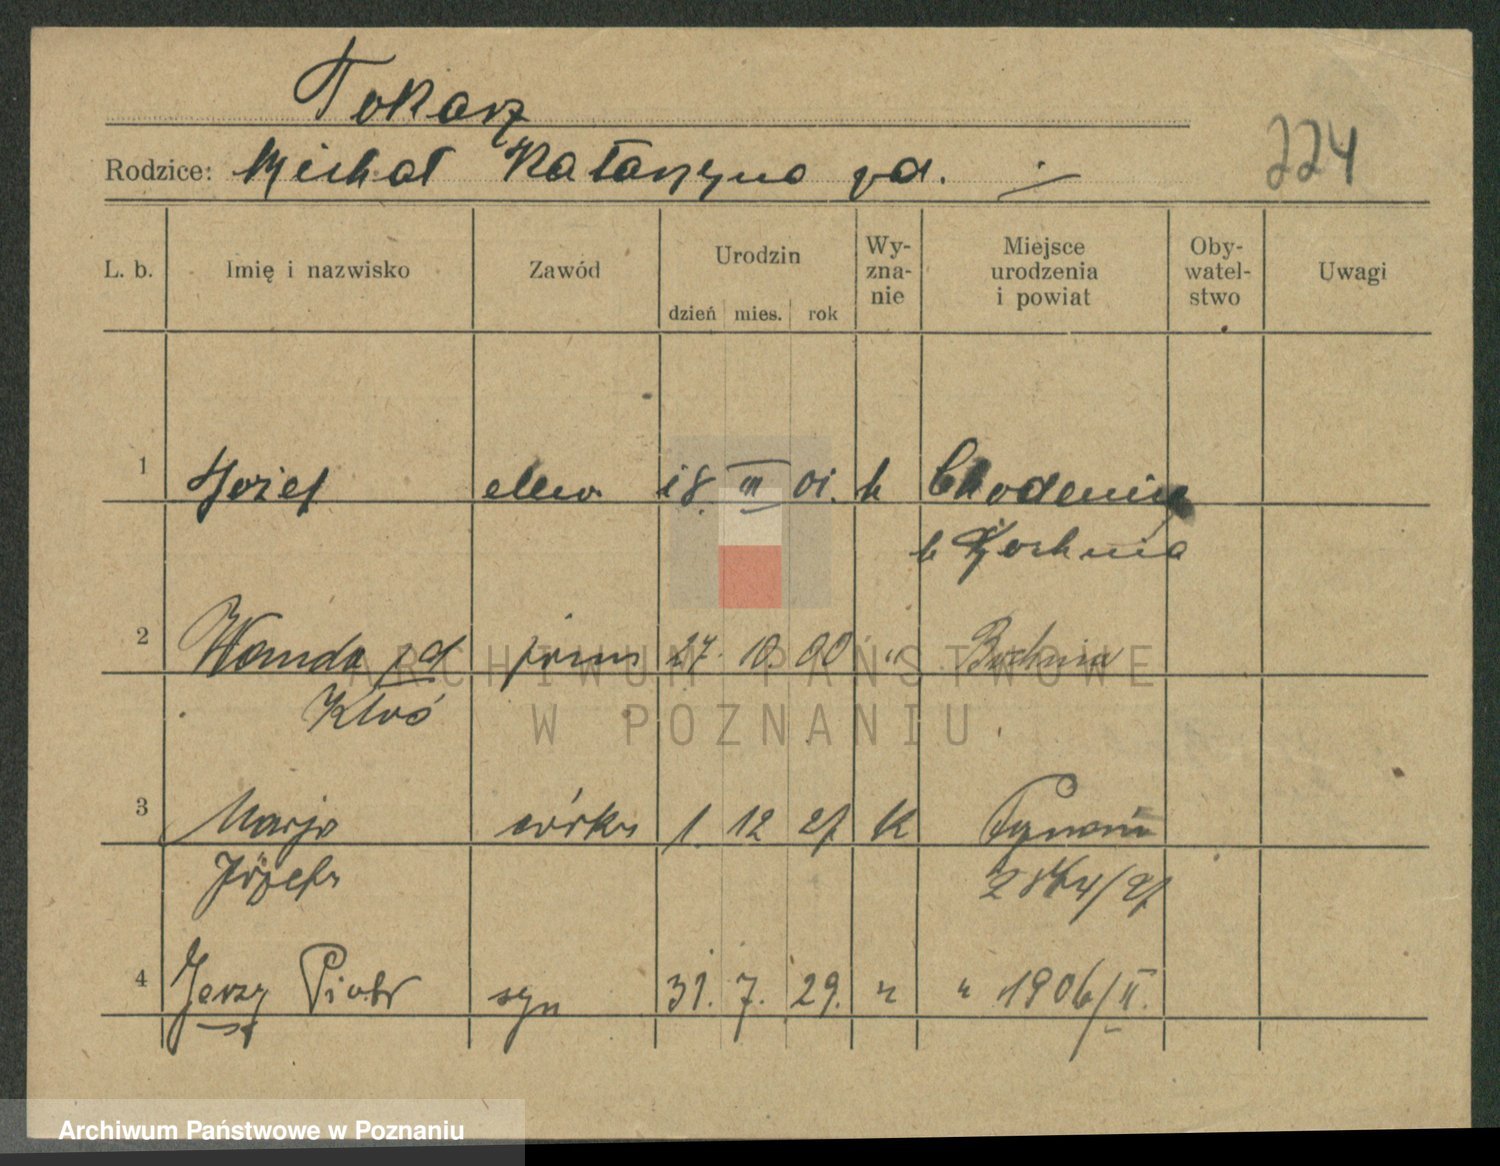 Tokarz
224
Rodzice: Michał Katarzyna zd. -
L. b. Imię i nazwisko Zawód Urodzin dzień mies. rok Wy-zna-nie Miejsce urodzenia i powiat Oby-watel-stwo Uwagi
1 Józef 18. III 01. k Chodenice
b Bochnia
2 Wanda zd 27. 10. 00 " Bochnia
Kłoś
3 Marja córka 1. 12 27 K Poznań
Józefa
4 Jerzy Piotr syn 31. 7. 29. " " 1906/II.
ARCHIWUM PAŃSTWOWE
W POZNANIU
Archiwum Państwowe w Poznaniu